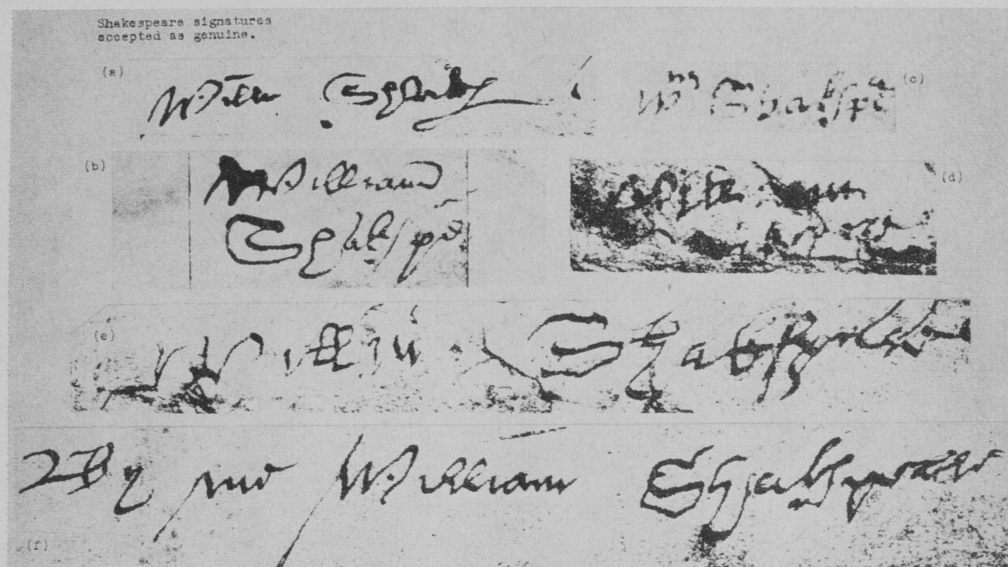 Shakespeare signatures
accepted as genuine.
(a)
Willm Shakp
Wm Shakspē (c)
(b)
William
Shakspē
(d)
(e)
Shakspere
By me William Shakspeare
(f)